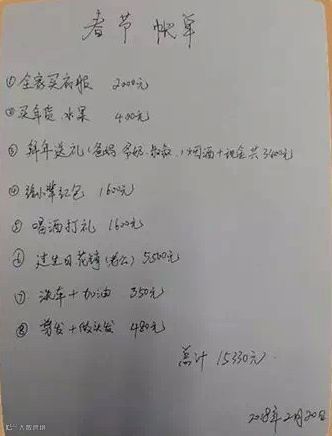 春节账单
①全家买衣服 2000元
②买年货、水果 400元
③拜年送礼(爸妈、爷奶、叔叔、)烟酒+现金共3400元
④给小辈红包 1600元
⑤喝酒打礼 1600元
⑥过生日花销(老公)5500元
⑦洗车+加油 350元
⑧剪发+做头发 480元
总计 15330元
2018年2月20日